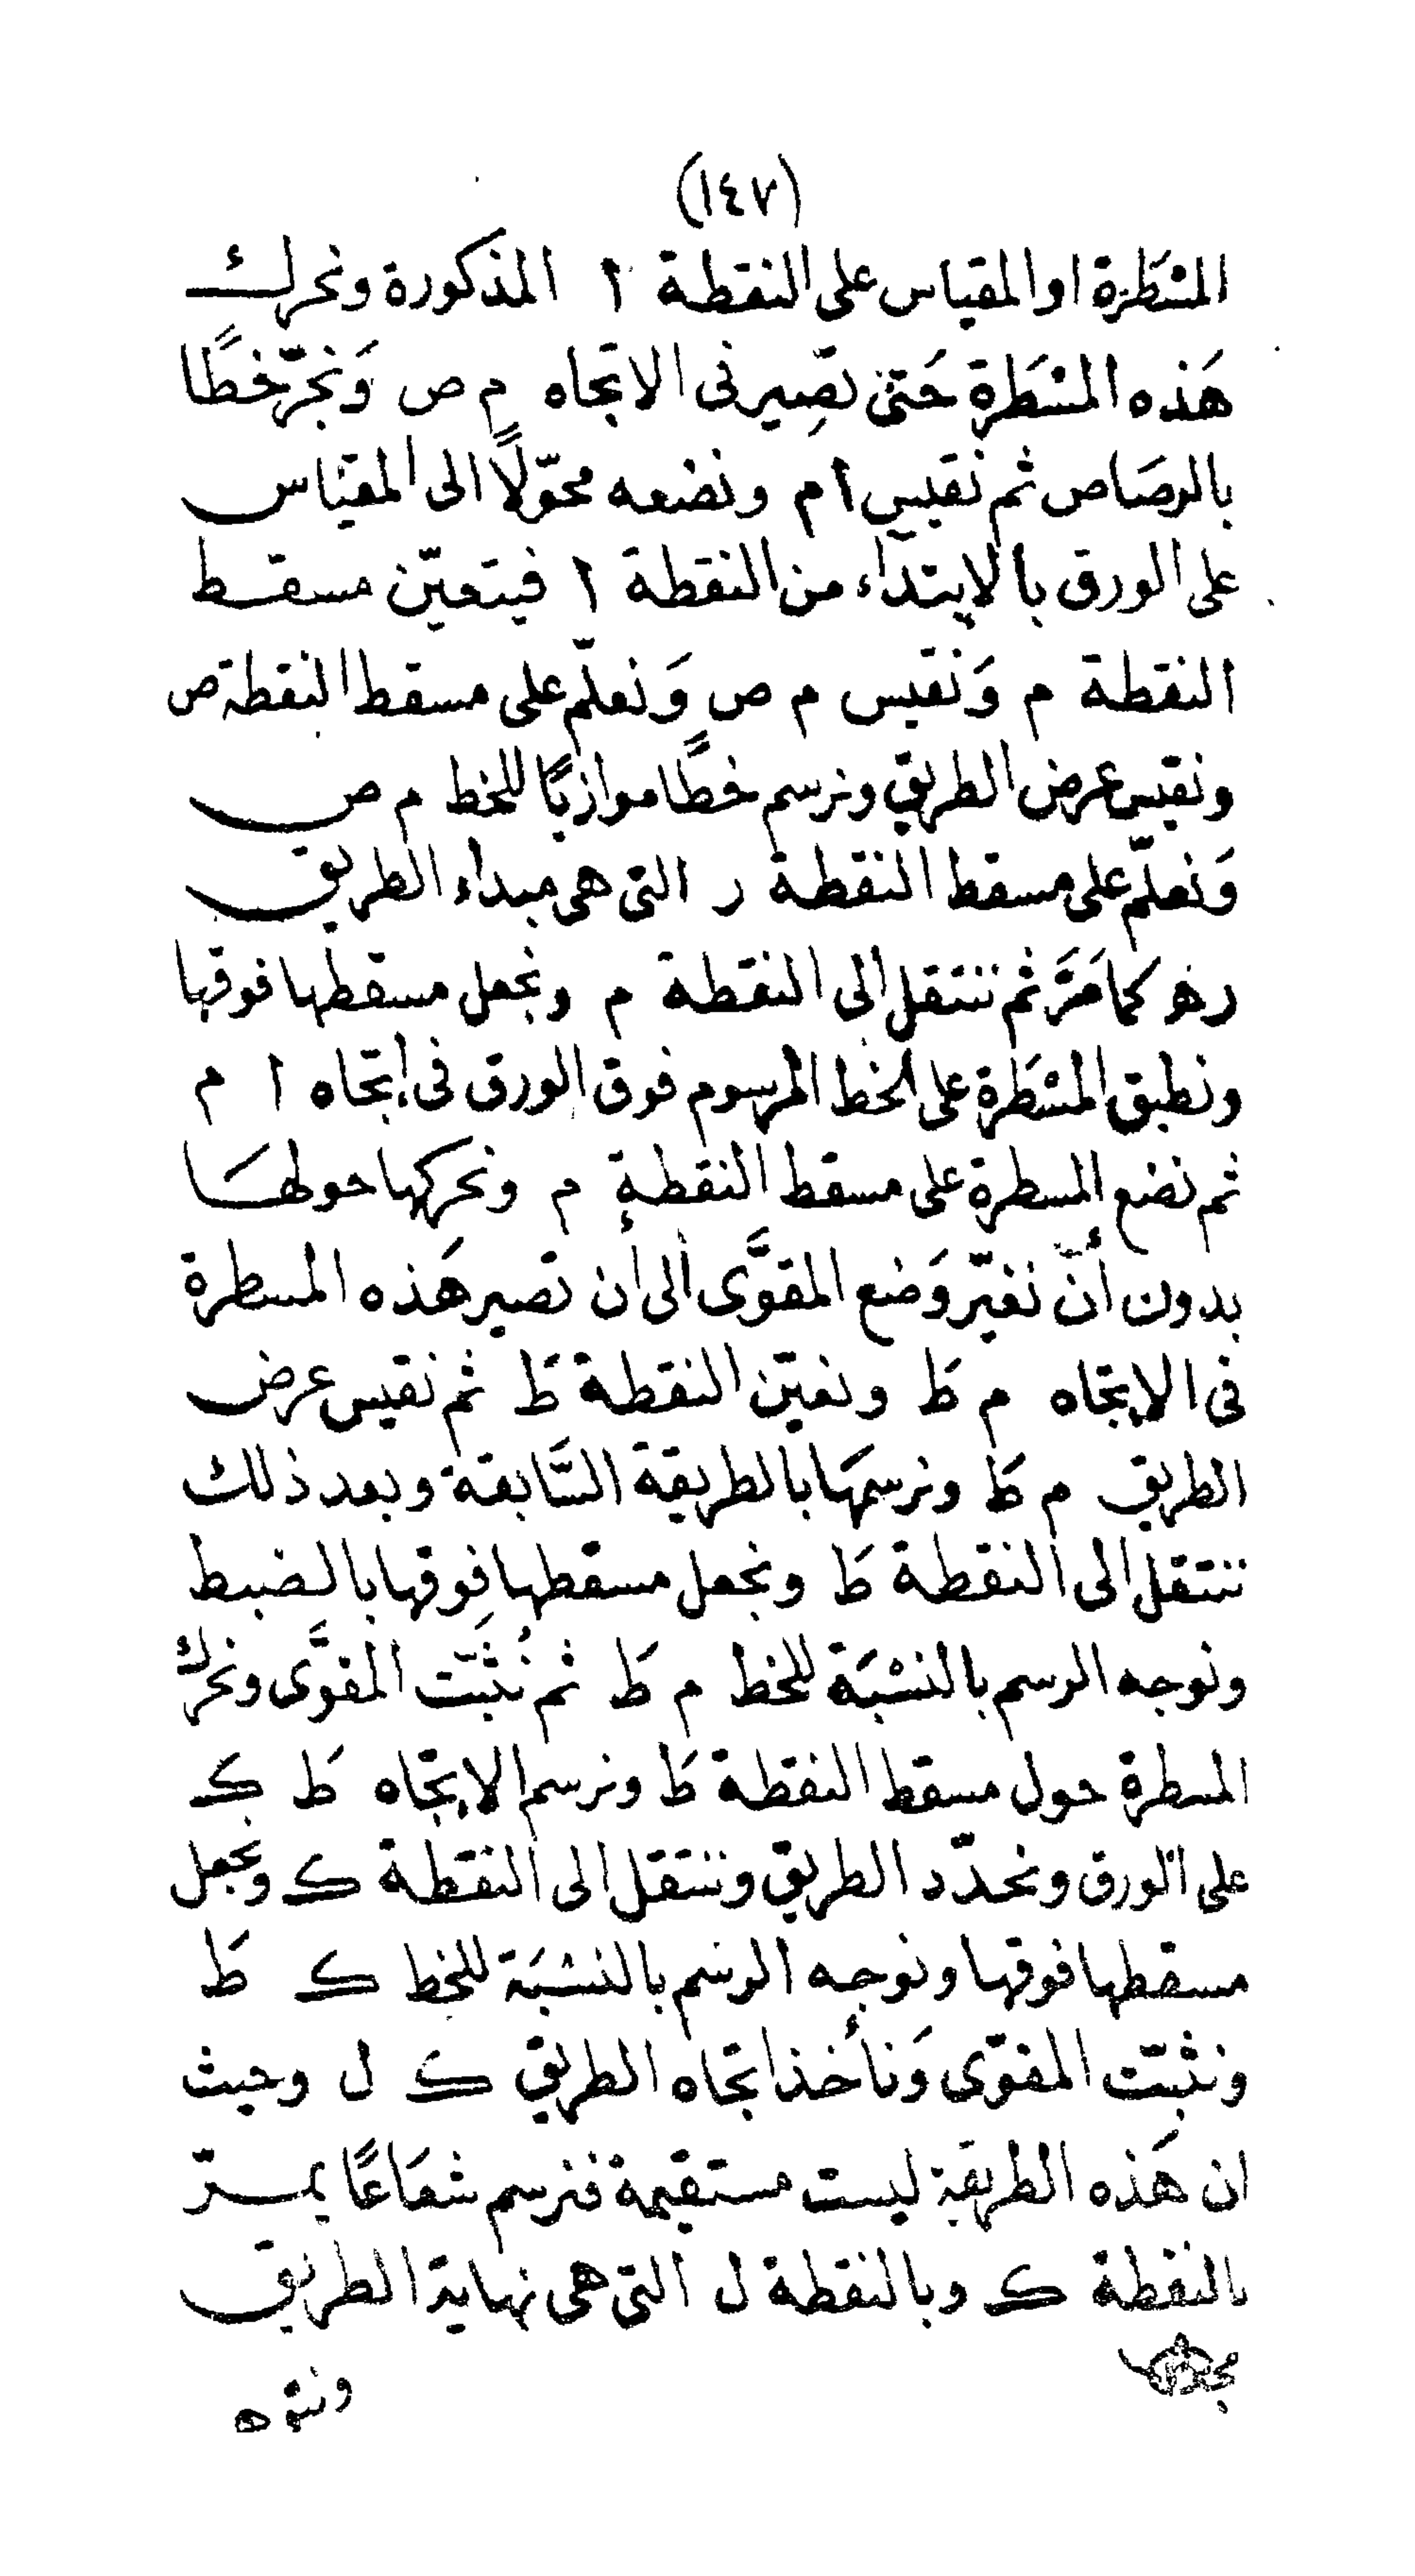 (١٤٧)
المسْطَرة او المقياس على النقطة ا المذكورة ونحرك
هَذه المسْطَرة حَتى تصِير فى الاتجاه م ص وَنجرّ خطًا
بالرصَاص ثم نقيس ا م ونضعه محوّلًا الى المقيَاس
على الورق بالابتداء من النقطة ا فيتعيّن مسقط
النقطة م وَنقيس م ص وَنعلّم على مسقط النقطة ص
ونقيس عرض الطريق ونرسم خطًا موازيًا للخط م ص
وَنعلّم على مسقط النقطة ر التى هى مبداء الطريق
ره كما مَرَّ ثم ننتقل الى النقطة م ونجعل مسقطها فوقها
ونطبق المسْطَرة على الخط المرسوم فوق الورق فى اتجاه ا م
ثم نضع المسطرة على مسقط النقطة م ونحركها حولهَا
بدون أنّ نغيّر وَضع المقوَّى الى أن تصير هَذه المسطرة
فى الاتجاه م ط ونعيّن النقطة ط ثم نقيس عرض
الطريق م ط ونرسمهَا بالطريقة السَّابقة وبعد ذلك
ننتقل الى النقطة ط ونجعل مسقطها فوقها بالضبط
ونوجه الرسم بالنسْبَة للخط م ط ثم نُثَبّت المقوَّى ونحرك
المسطرة حول مسقط النقطة ط ونرسم الاتجاه ط ك
على الورق ونحدّد الطريق وننتقل الى النقطة ك ونجعل
مسقطها فوقها ونوجه الرسم بالنسْبَة للخط ك ط
ونثبّت المقوّى وَنأخذ اتجاه الطريق ك ل وحيث
ان هَذه الطريقة ليست مستقيمة فنرسم شعَاعًا يمرّ
بالنقطة ك وبالنقطة ل التى هى نهاية الطريق